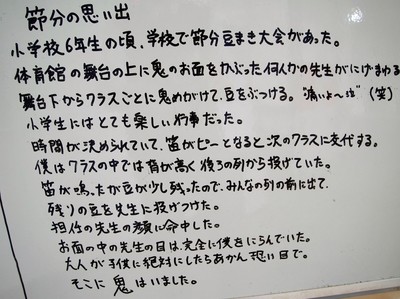 節分の思い出
小学校6年生の頃、学校で節分豆まき大会があった。
体育館の舞台の上に鬼のお面をかぶった何人かの先生がにげまわる
舞台下からクラスごとに鬼めがけて、豆をぶつける。"痛いよ〜ぅ"(笑)
小学生にはとても楽しい行事だった。
時間が決められていて、笛がピーとなると次のクラスに交代する。
僕はクラスの中では背が高く後ろの列から投げていた。
笛が鳴ったが豆が少し残ったので、みんなの列の前に出て、
残りの豆を先生に投げつけた。
担任の先生の顔に命中した。
お面の中の先生の目は完全に僕をにらんでいた。
大人が子供に絶対にしたらあかん恐い目で。
そこに鬼はいました。